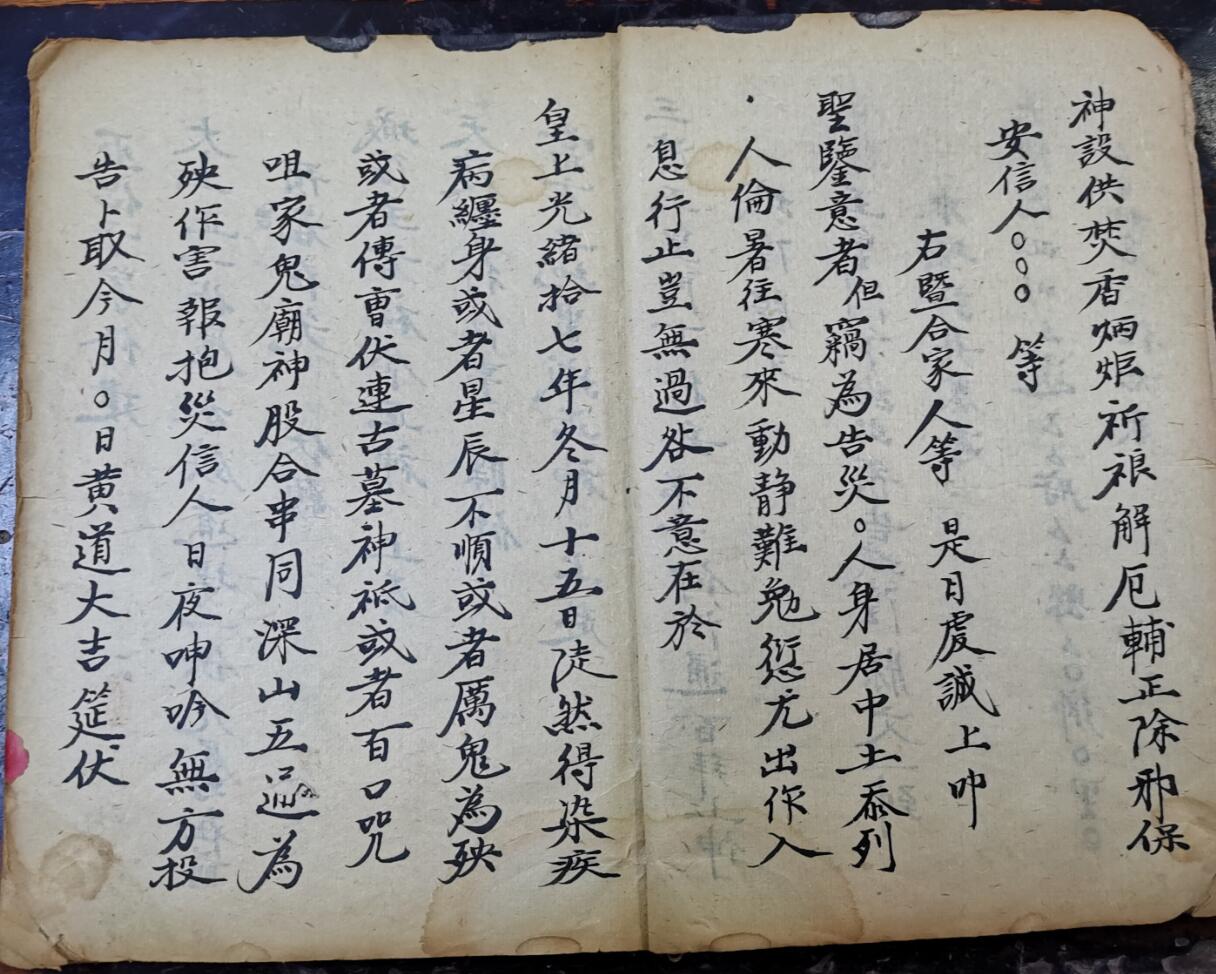 神設供焚香炳炬祈禳解厄輔正除邪保
安信人○○○等
右暨合家人等是日虔誠上叩
聖鑒意者但竊為告災○人身居中土忝列
人倫暑往寒來動静難勉愆尤出作入
息行止豈無過咎不意在於
皇上光緒拾七年冬月十五日陡然得染疾
病纏身或者星辰不順或者厲鬼為殃
或者傳曺伏連古墓神祗或者百口咒
咀家鬼廟神股合串同深山五為
殃作害報抱災信人日夜呻吟無方投
告卜取今月○日黄道大吉筵伏